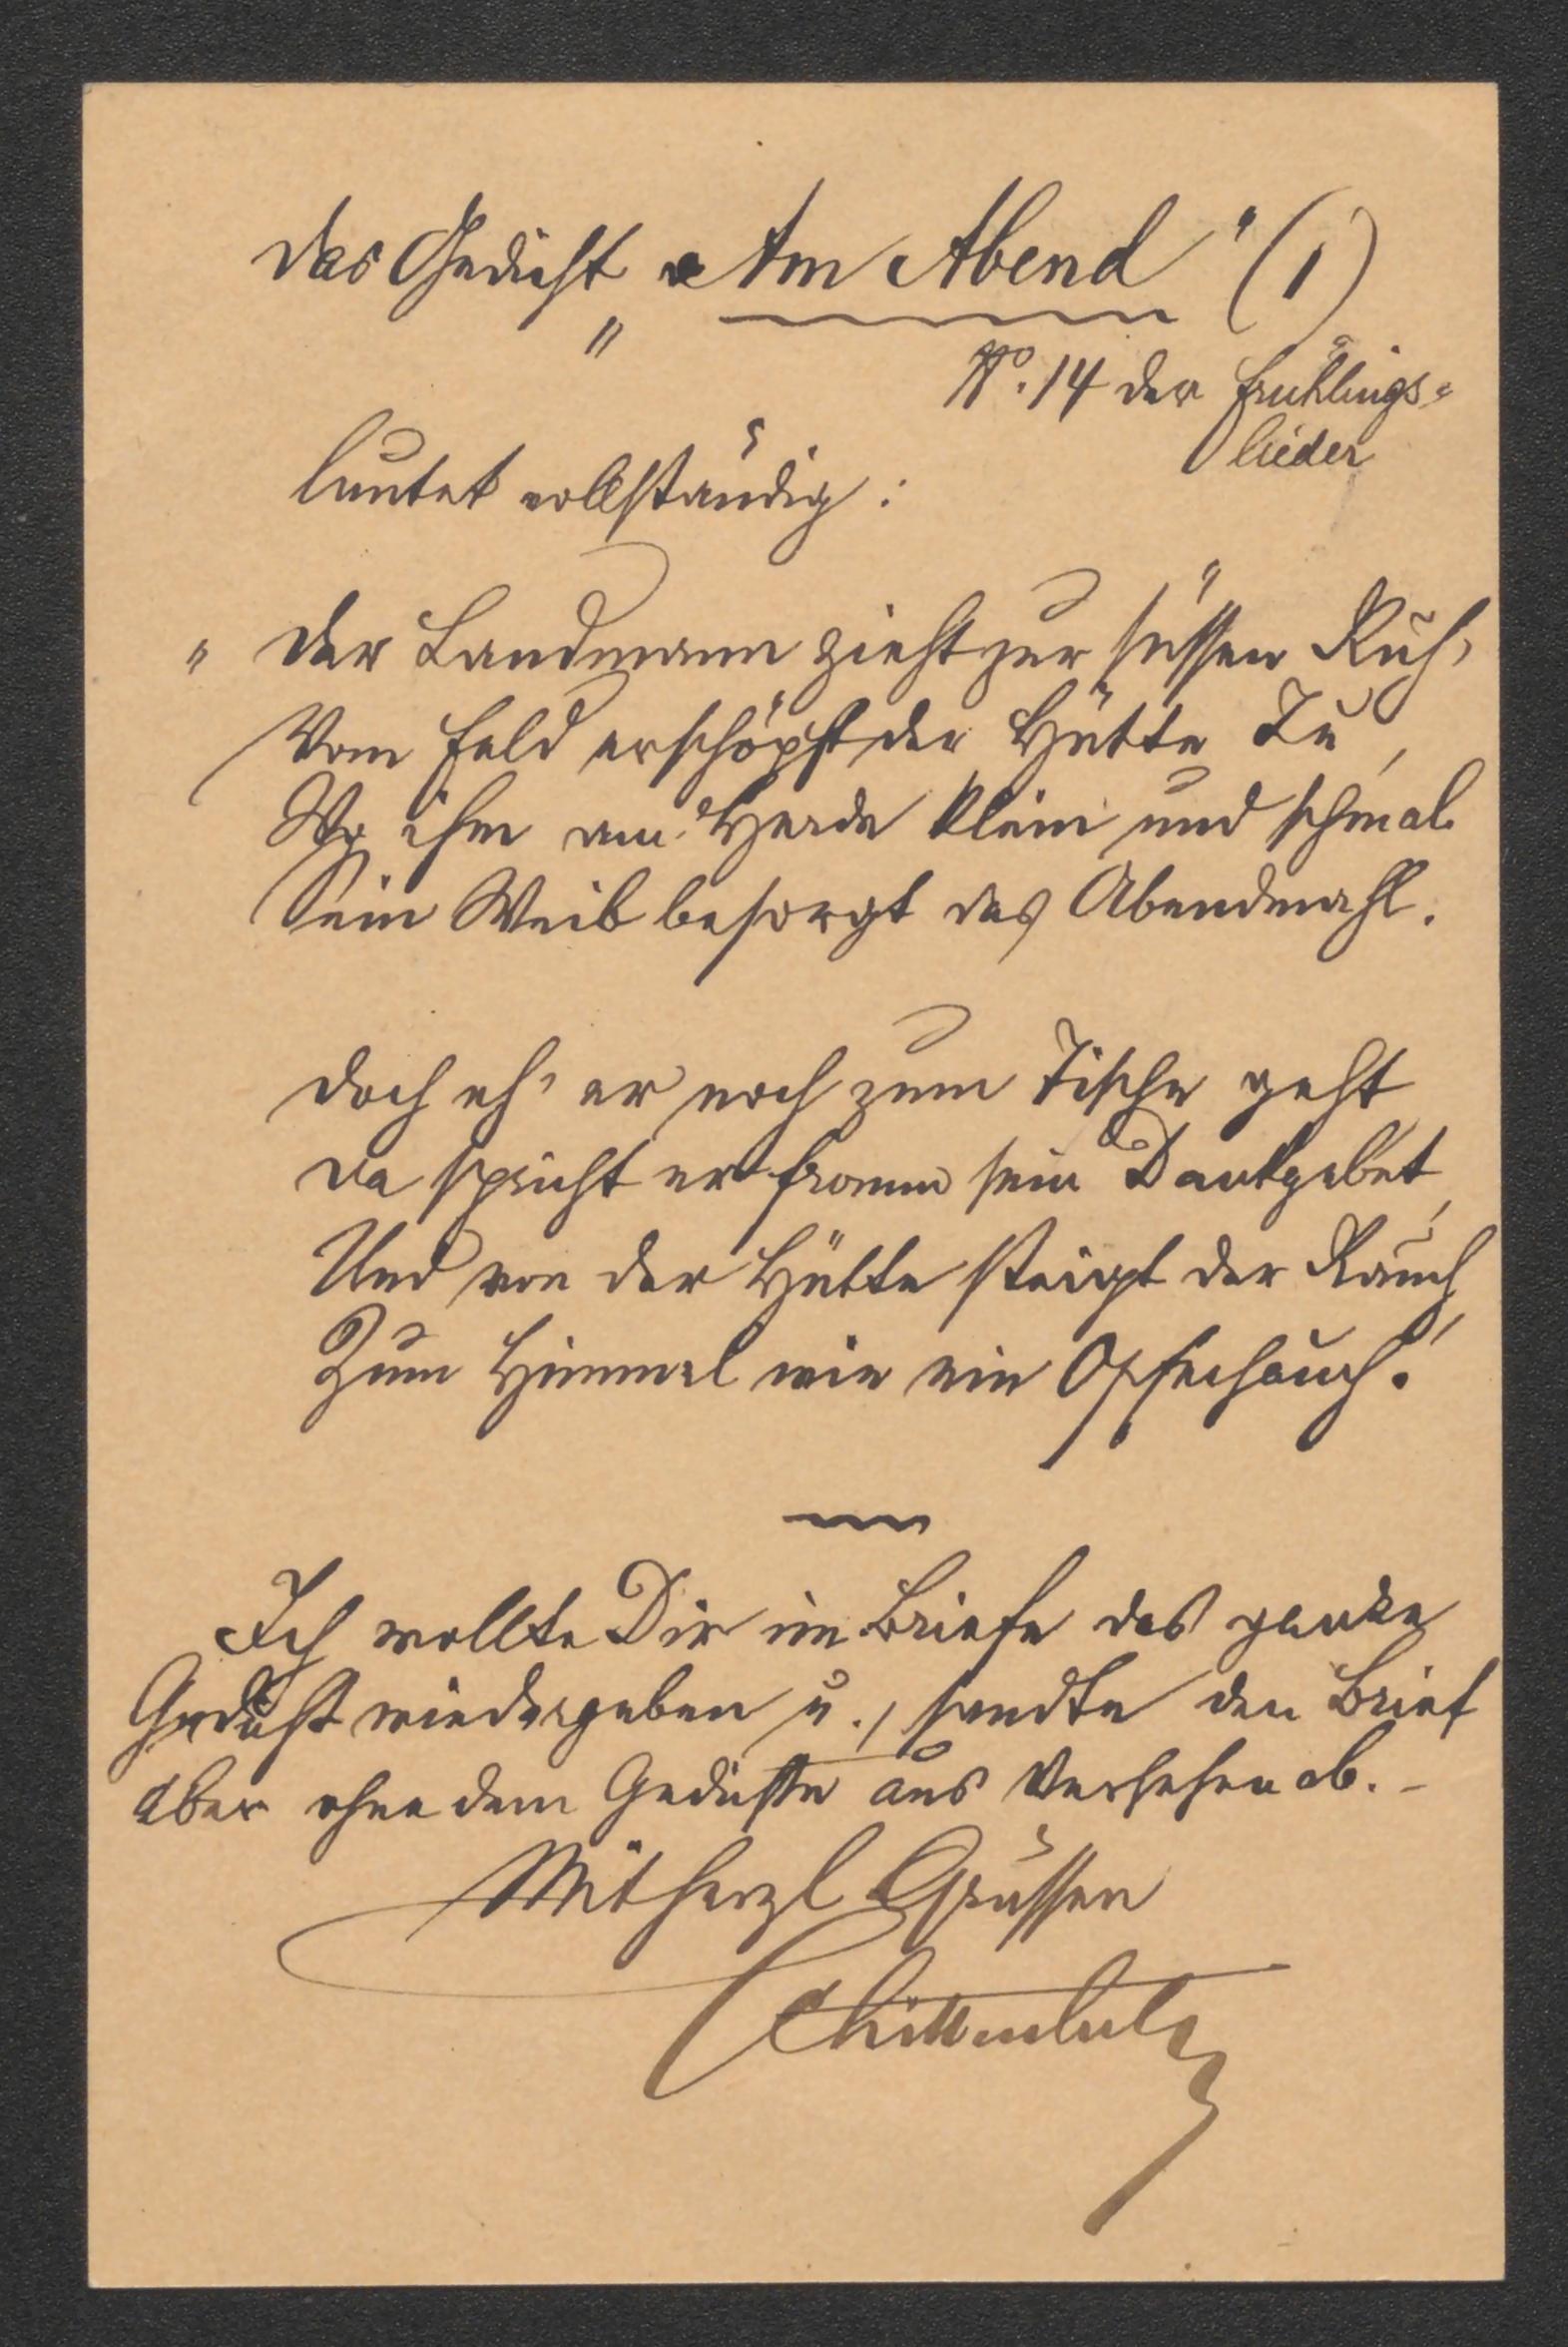 Das Gedicht „Am Abend" (1)
No. 14 der Frühlings=
lieder
lautet vollständig:
„Der Landmann zieht zur süssen Ruh'
Vom Feld erschöpft der Hütte zu,
Wo ihm am Herde klein und schmal
Sein Weib besorgt das Abendmahl.
Doch eh' er noch zum Tische geht
Da spricht er fromm sein Dankgebet,
Und von der Hütte steigt der Rauch,
Zum Himmel wie ein Opferhauch."
Ich wollte Dir im Briefe das ganze
Gedicht wiedergeben u., sandte den Brief
aber ohne dem Gedichte aus Versehen ab. –
Mit herzl Grüssen